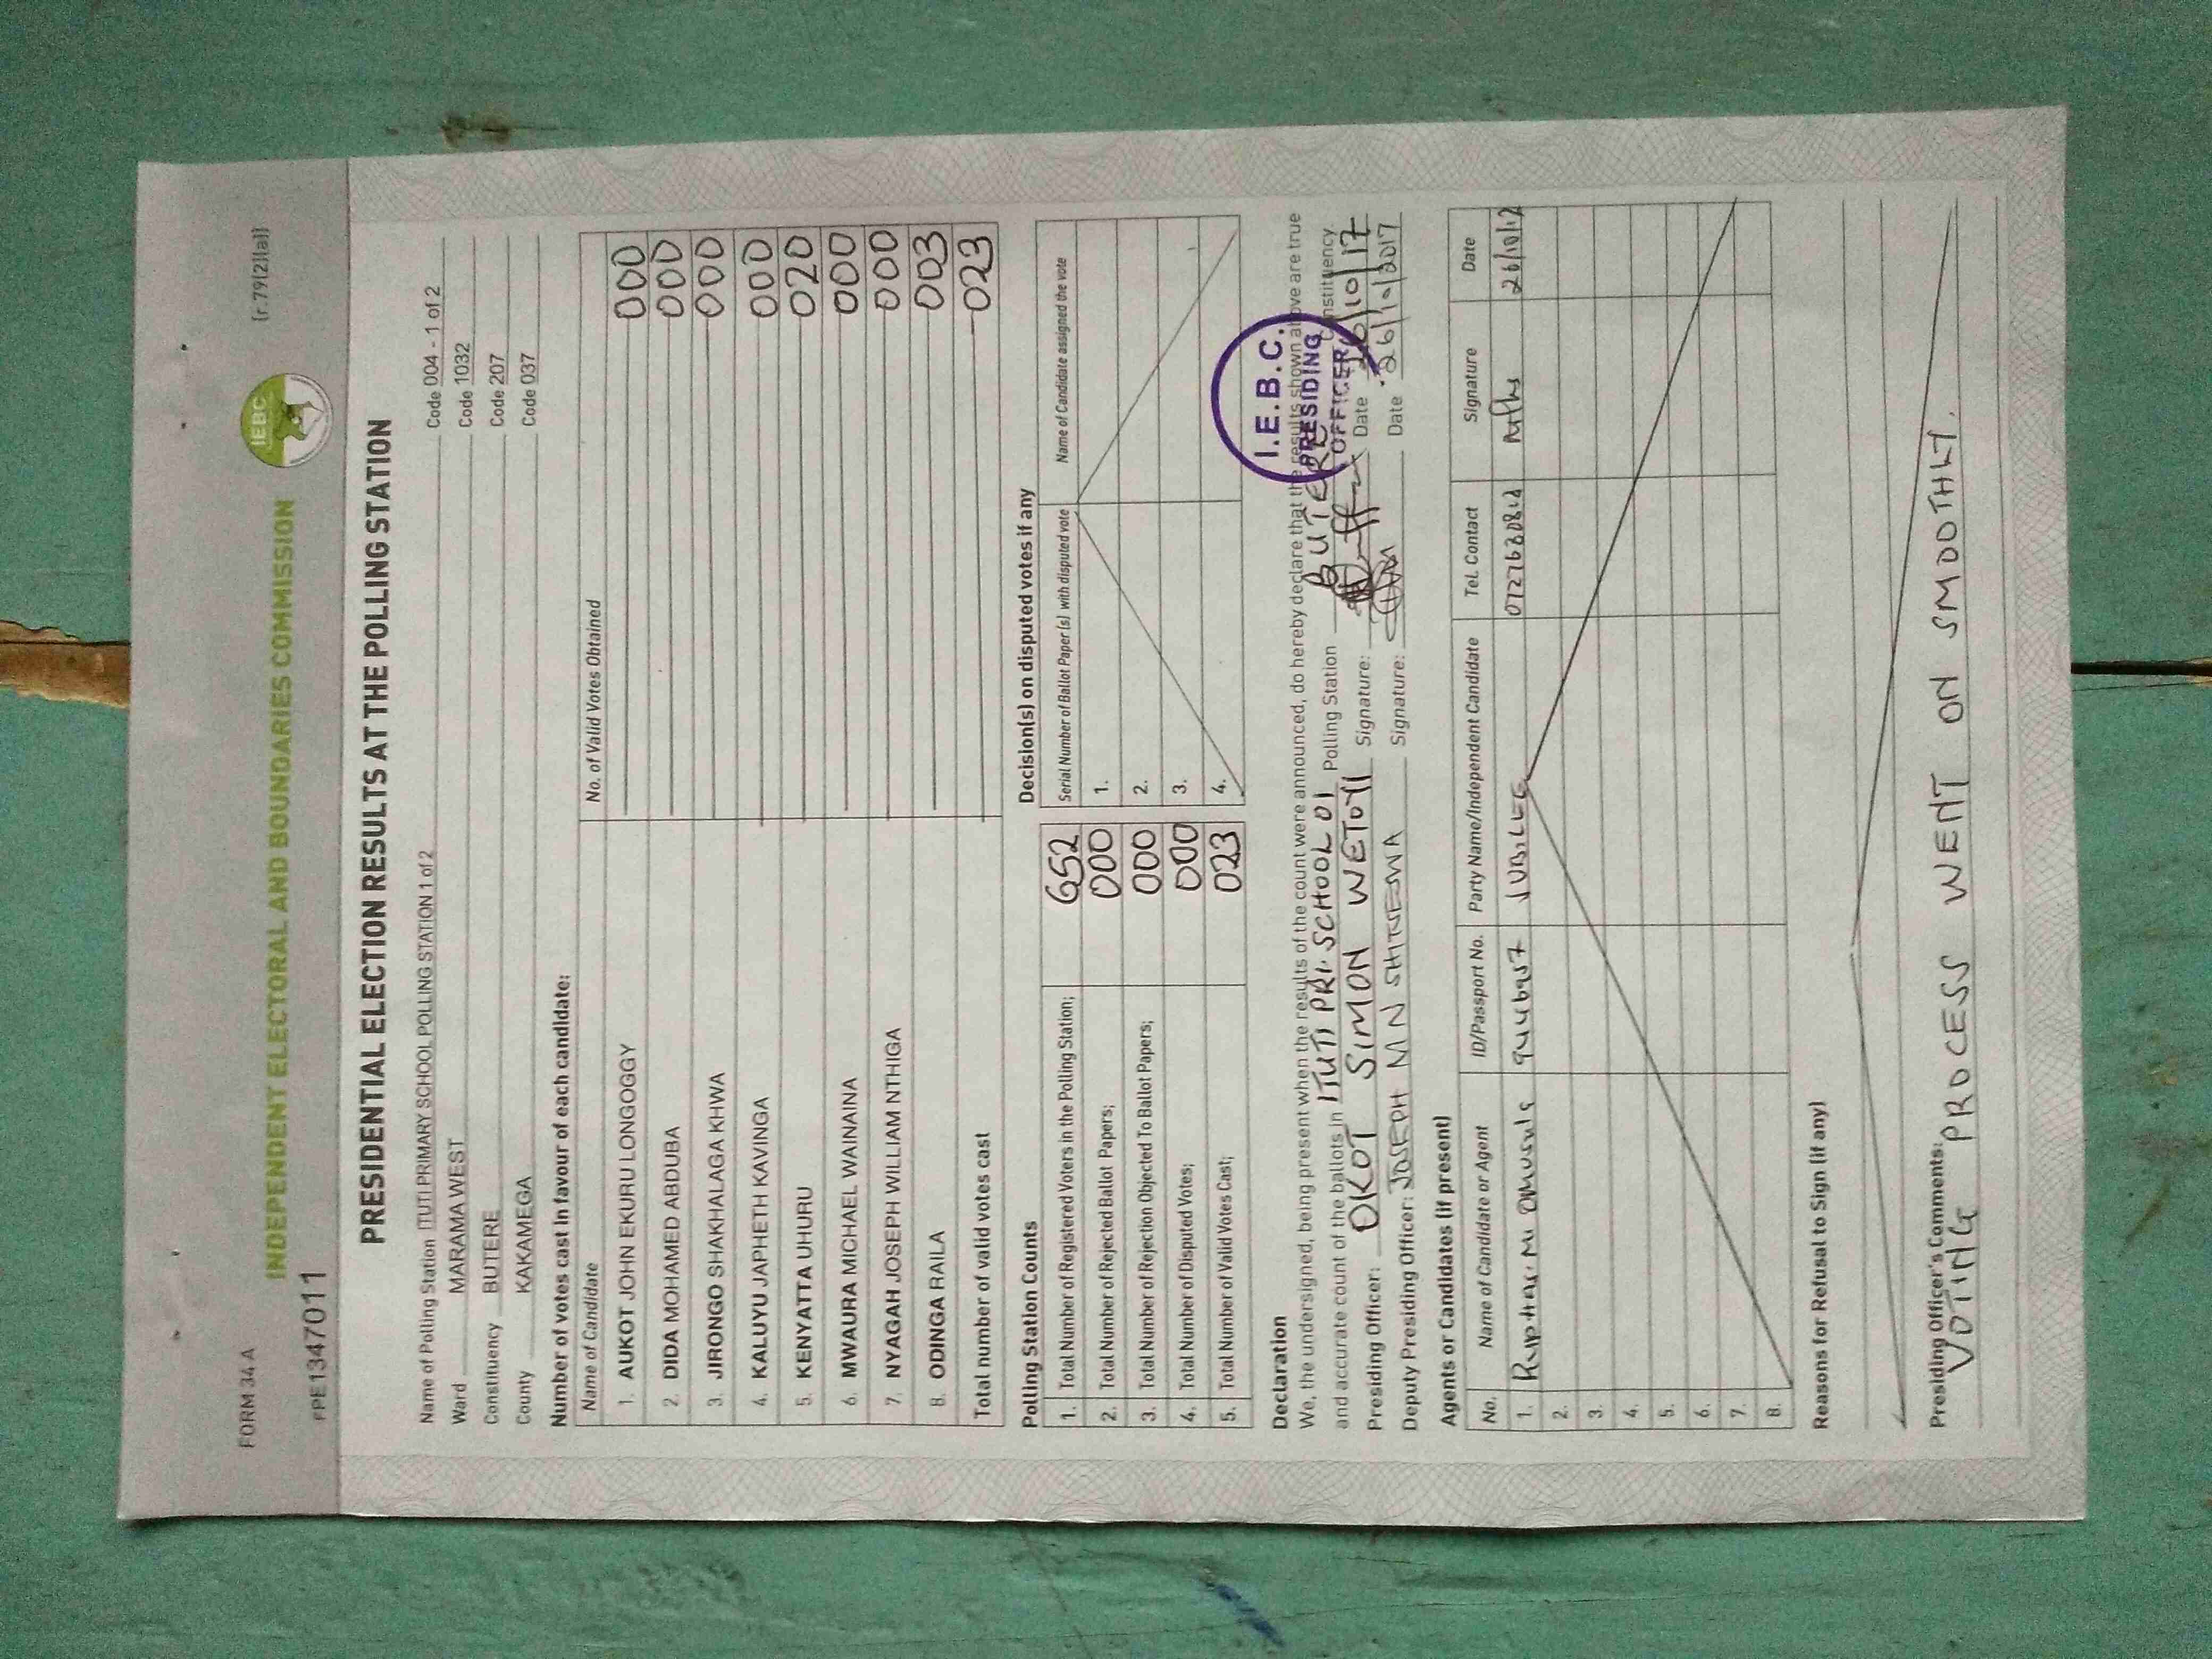 FORM 34 A
(r.79(2)(a))
INDEPENDENT ELECTORAL AND BOUNDARIES COMMISSION
IEBC
PRE1347011
PRESIDENTIAL ELECTION RESULTS AT THE POLLING STATION
Name of Polling Station ITUTI PRIMARY SCHOOL POLLING STATION 1 of 2 Code 004 - 1 of 2
Ward MARAMA WEST Code 1032
Constituency BUTERE Code 207
County KAKAMEGA Code 037
Number of votes cast in favour of each candidate:
Name of Candidate No. of Valid Votes Obtained
1. AUKOT JOHN EKURU LONGOGGY 000
2. DIDA MOHAMED ABDUBA 000
3. JIRONGO SHAKHALAGA KHWA 000
4. KALUYU JAPHETH KAVINGA 000
5. KENYATTA UHURU 020
6. MWAURA MICHAEL WAINAINA 000
7. NYAGAH JOSEPH WILLIAM NTHIGA 000
8. ODINGA RAILA 003
Total number of valid votes cast 023
Polling Station Counts
1. Total Number of Registered Voters in the Polling Station; 652
2. Total Number of Rejected Ballot Papers; 000
3. Total Number of Rejection Objected To Ballot Papers; 000
4. Total Number of Disputed Votes; 000
5. Total Number of Valid Votes Cast; 023
Decision(s) on disputed votes if any
Serial Number of Ballot Paper(s) with disputed vote Name of Candidate assigned the vote
1.
2.
3.
4.
Declaration
We, the undersigned, being present when the results of the count were announced, do hereby declare that the results shown above are true
and accurate count of the ballots in ITUTI PRI. SCHOOL 01 Polling Station BUTERE Constituency.
Presiding Officer: OKOT SIMON WETOYI Signature: Date 26/10/17
Deputy Presiding Officer: JOSEPH M N SHITSESWA Signature: Date 26/10/2017
I.E.B.C.
PRESIDING
OFFICER
Agents or Candidates (if present)
No. Name of Candidate or Agent ID/Passport No. Party Name/Independent Candidate Tel. Contact Signature Date
1. JUBILEE 26/10/17
2.
3.
4.
5.
6.
7.
8.
Reasons for Refusal to Sign (if any)
Presiding Officer's Comments:
VOTING PROCESS WENT ON SMOOTHLY.